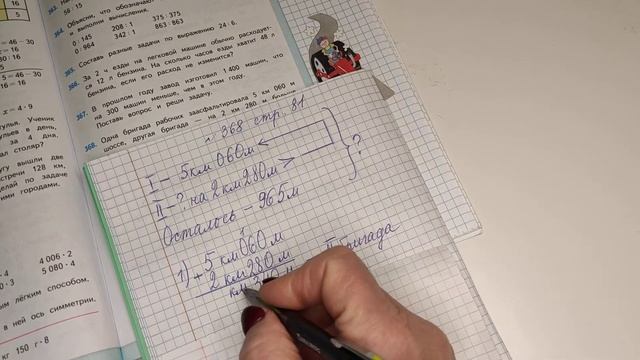 5
16
= 46 − 30
= 16
= 16
5 = 46 − 30
= 16
= 16
x = 4 · 9
58 · 15
364. Объясни, что обозначают
и выполни вычисления.
0 · 145 208 : 1 375 · 375
0 : 964 342 : 1 863 : 863
365. Составь разные задачи по выражению 24 · 6.
366. За 2 ч езды на легковой машине обычно расходует-
ся 12 л бензина. На сколько часов езды хватит 48 л
бензина, если его расход не изменится?
367. В прошлом году завод изготовил 1 400 машин, что
на 300 машин меньше, чем в этом году.
Поставь вопрос и реши задачу.
368. Одна бригада рабочих заасфальтировала 5 км 060 м
шоссе, другая бригада — на 2 км 280 м
за 4 дня.
4 006 · 2
5 080 · 4
ым лёгким способом,
в ней ось симметрии.
кг 150 г · 8
№ 368 стр. 81
I – 5км 060м
II – ? на 2км 280м >
?
Осталось – 965м
1) 5 км 060 м
2 км 280 м
км 340 м
II бригада